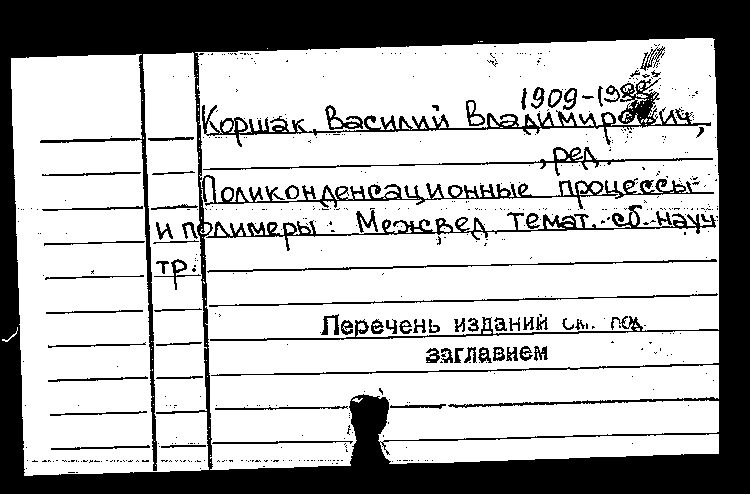 1909-19
Коршак, Василий Владимирович,
, ред.
Поликонденсационные процессы
и полимеры: Межвед. темат. сб. науч
тр.
Перечень изданий см. под
заглавием